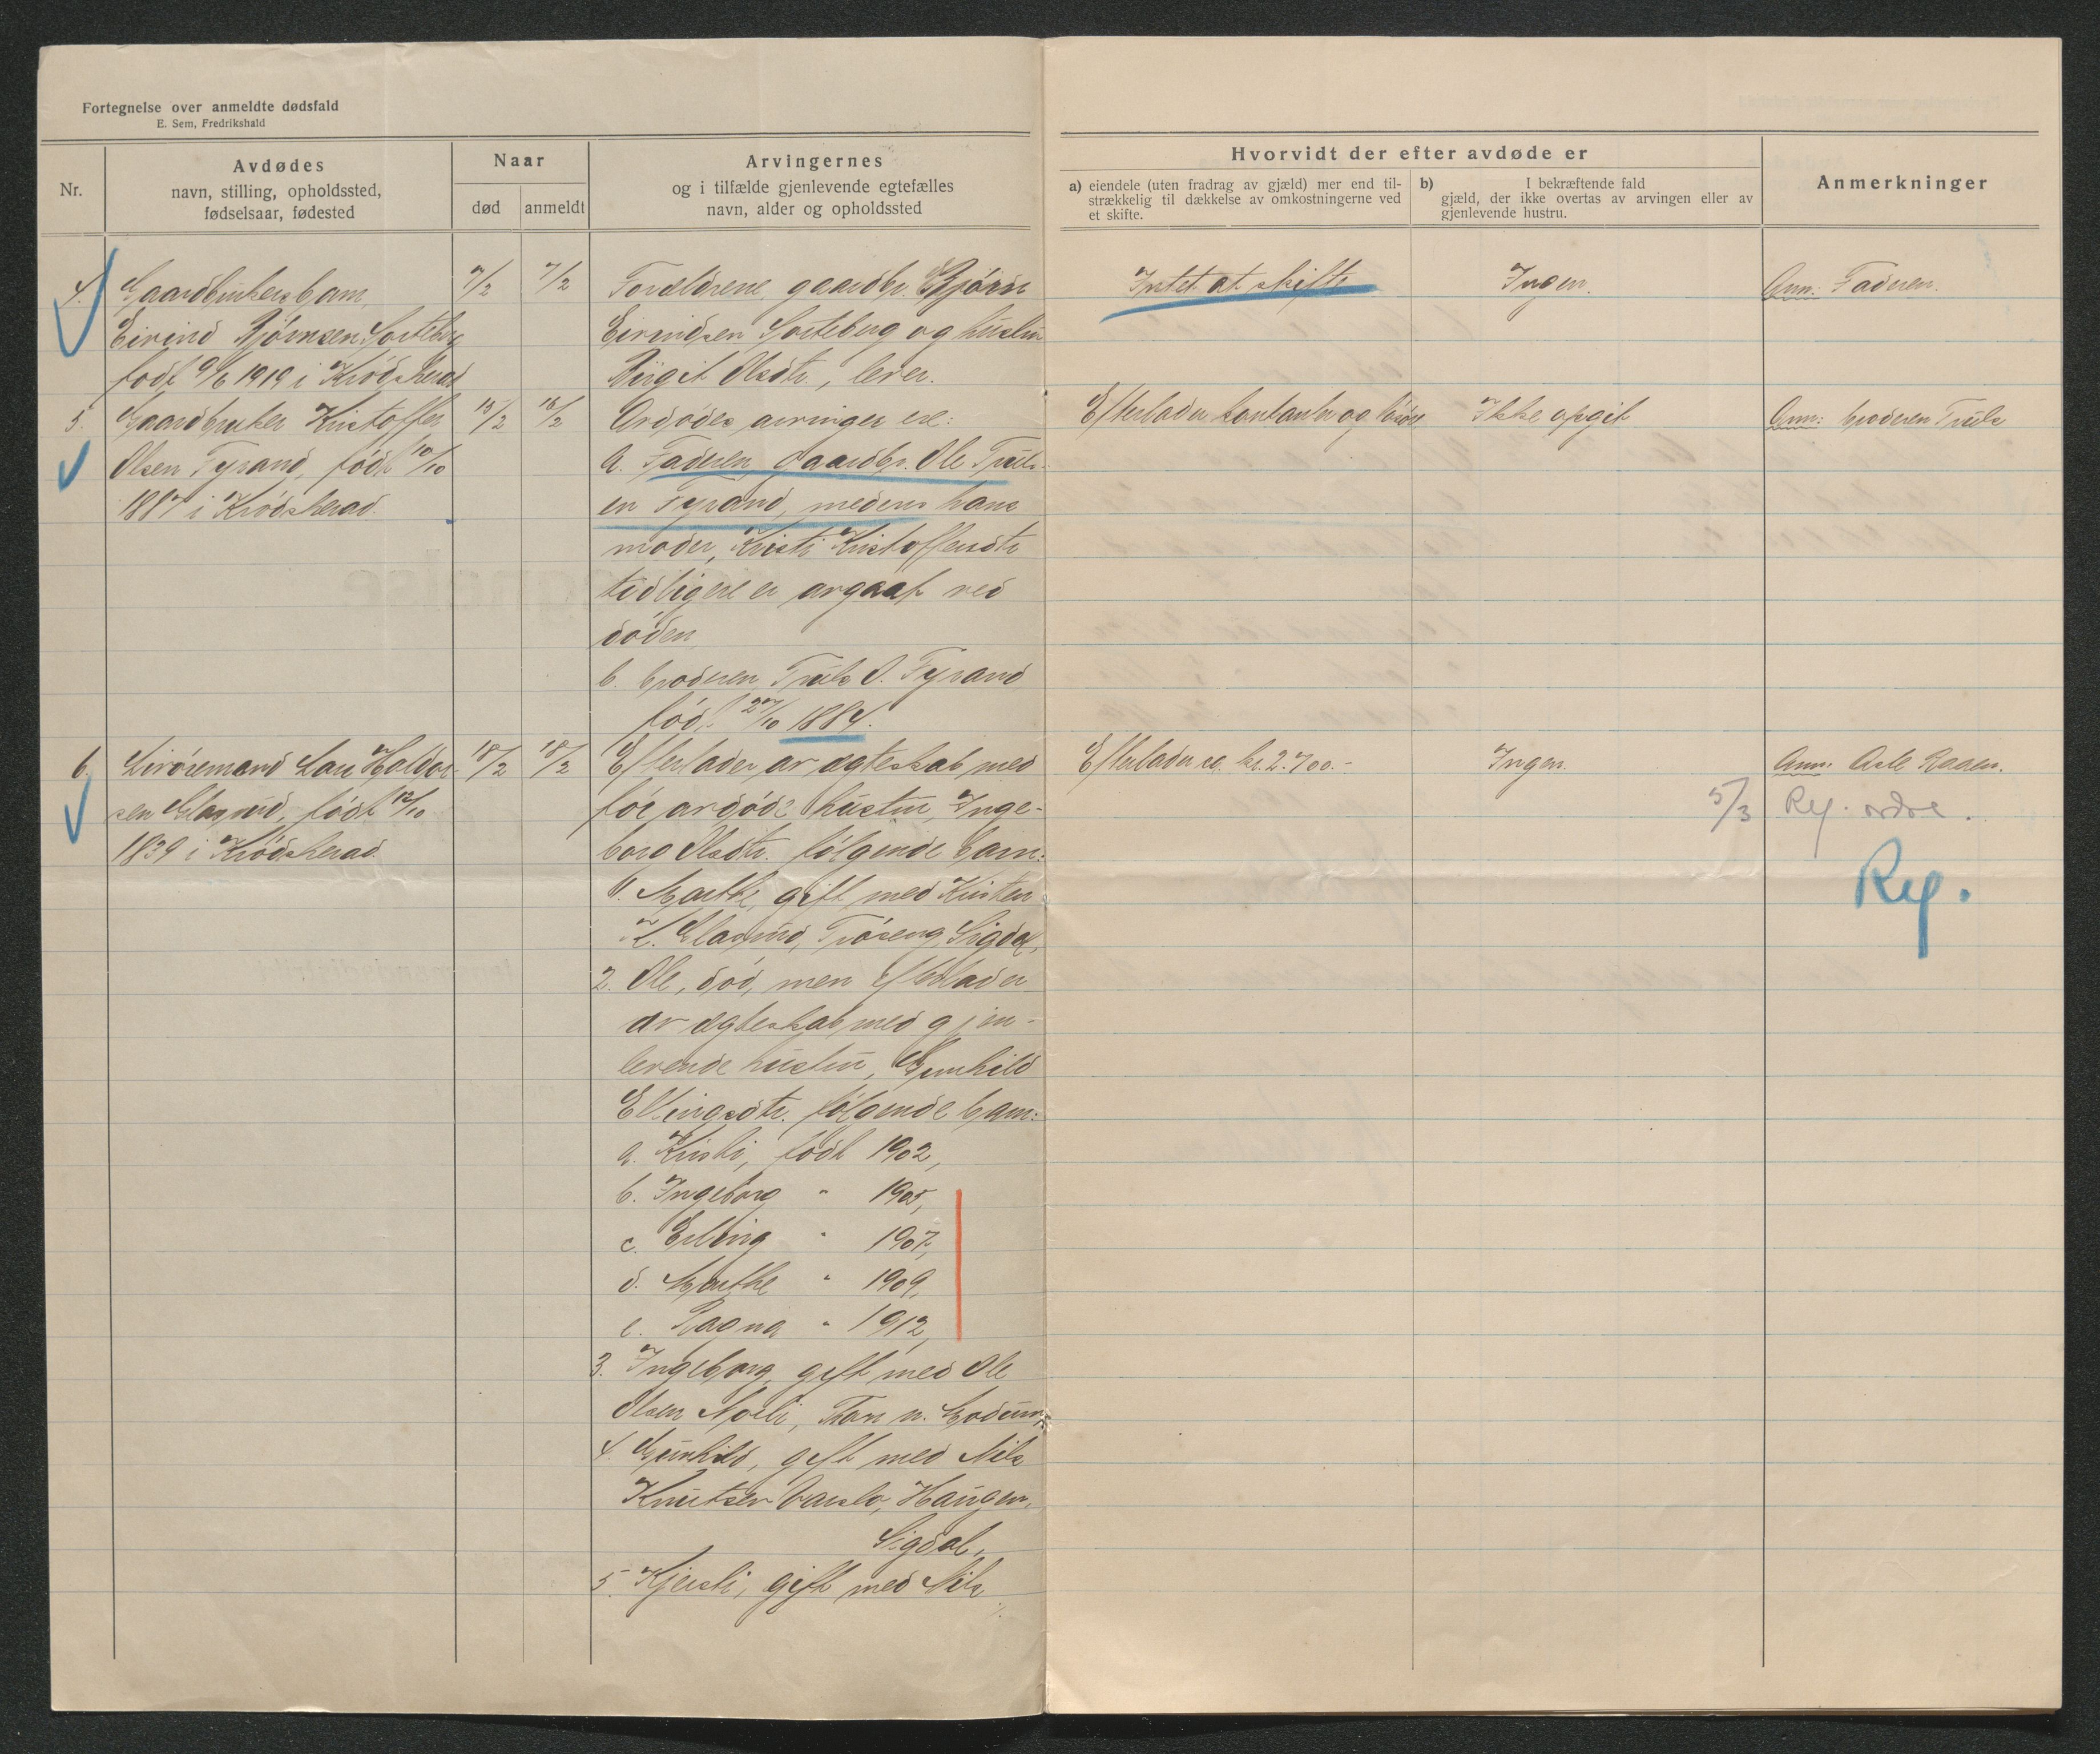 Fortegnelse over anmeldte dødsfald
E. Sem, Fredrikshald
Nr.
Avdødes
navn, stilling, opholdssted,
fødselsaar, fødested
Naar
død
anmeldt
Arvingernes
og i tilfælde gjenlevende egtefælles
navn, alder og opholdssted
Hvorvidt der efter avdøde er
a) eiendele (uten fradrag av gjæld) mer end til-
strækkelig til dækkelse av omkostningerne ved
et skifte.
b) I bekræftende fald
gjæld, der ikke overtas av arvingen eller av
gjenlevende hustru.
Anmerkninger
4. Gaardbrukersbarn,
Eivind Bjørnsen Sorteberg
født 9/6 1919 i Krødsherad
7/2
7/2
Forældrene, gaardbr. Bjørn
Eivindsen Sorteberg og hustru
Birgit Olsdtr., lever.
Intet at skifte
Ingen.
Anm: Faderen.
5. Gaardbruker Kristoffer
Olsen Fyrand, født 10/10
1887 i Krødsherad.
15/2
16/2
Avdødes arvinger er:
a. Faderen, gaardbr. Ole Truls-
en Fyrand, medens hans
moder, Kristi Kristoffersdtr
tidligere er avgaat ved
døden,
b. broderen Truls O. Fyrand
født 27/10 1884.
Efterlader kontanter og løsøre
Ikke opgit
Anm: broderen Truls
6. Livøremand Lars Haldor-
sen Glasrud, født 12/10
1839 i Krødsherad.
18/2
18/2
Efterlader av egteskab med
før avdøde hustru, Inge-
borg Olsdtr. følgende barn:
1. Marthe, gift med Kristen
K. Glasrud, Trøseng, Sigdal,
2. Ole, død, men efterlader
av egteskab med gjen-
levende hustru, Gunhild
Ellingsdtr. følgende barn:
a. Kristi, født 1902,
b. Ingeborg " 1905,
c. Erling " 1907,
d. Marthe " 1909,
e. Ragna " 1912,
3. Ingeborg, gift med Ole
Olsen Moeli, n. Modum,
4. Gunhild, gift med Nils
Knutsen Varslo, Haugen,
Sigdal,
5. Kjersti, gift med Nils
./.
Efterlader ca. kr. 2.700.-
Ingen.
Anm: Asle Raaen.
5/3 Reg. ordre.
Reg.